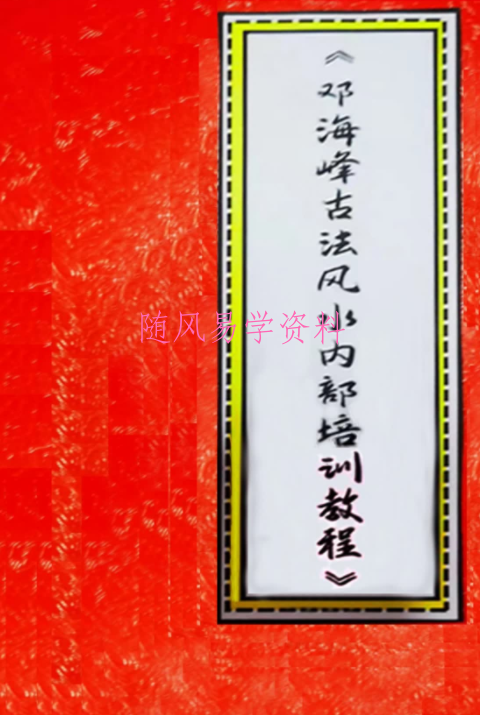 《邓海峰古法风水内部培训教程》
随风易学资料